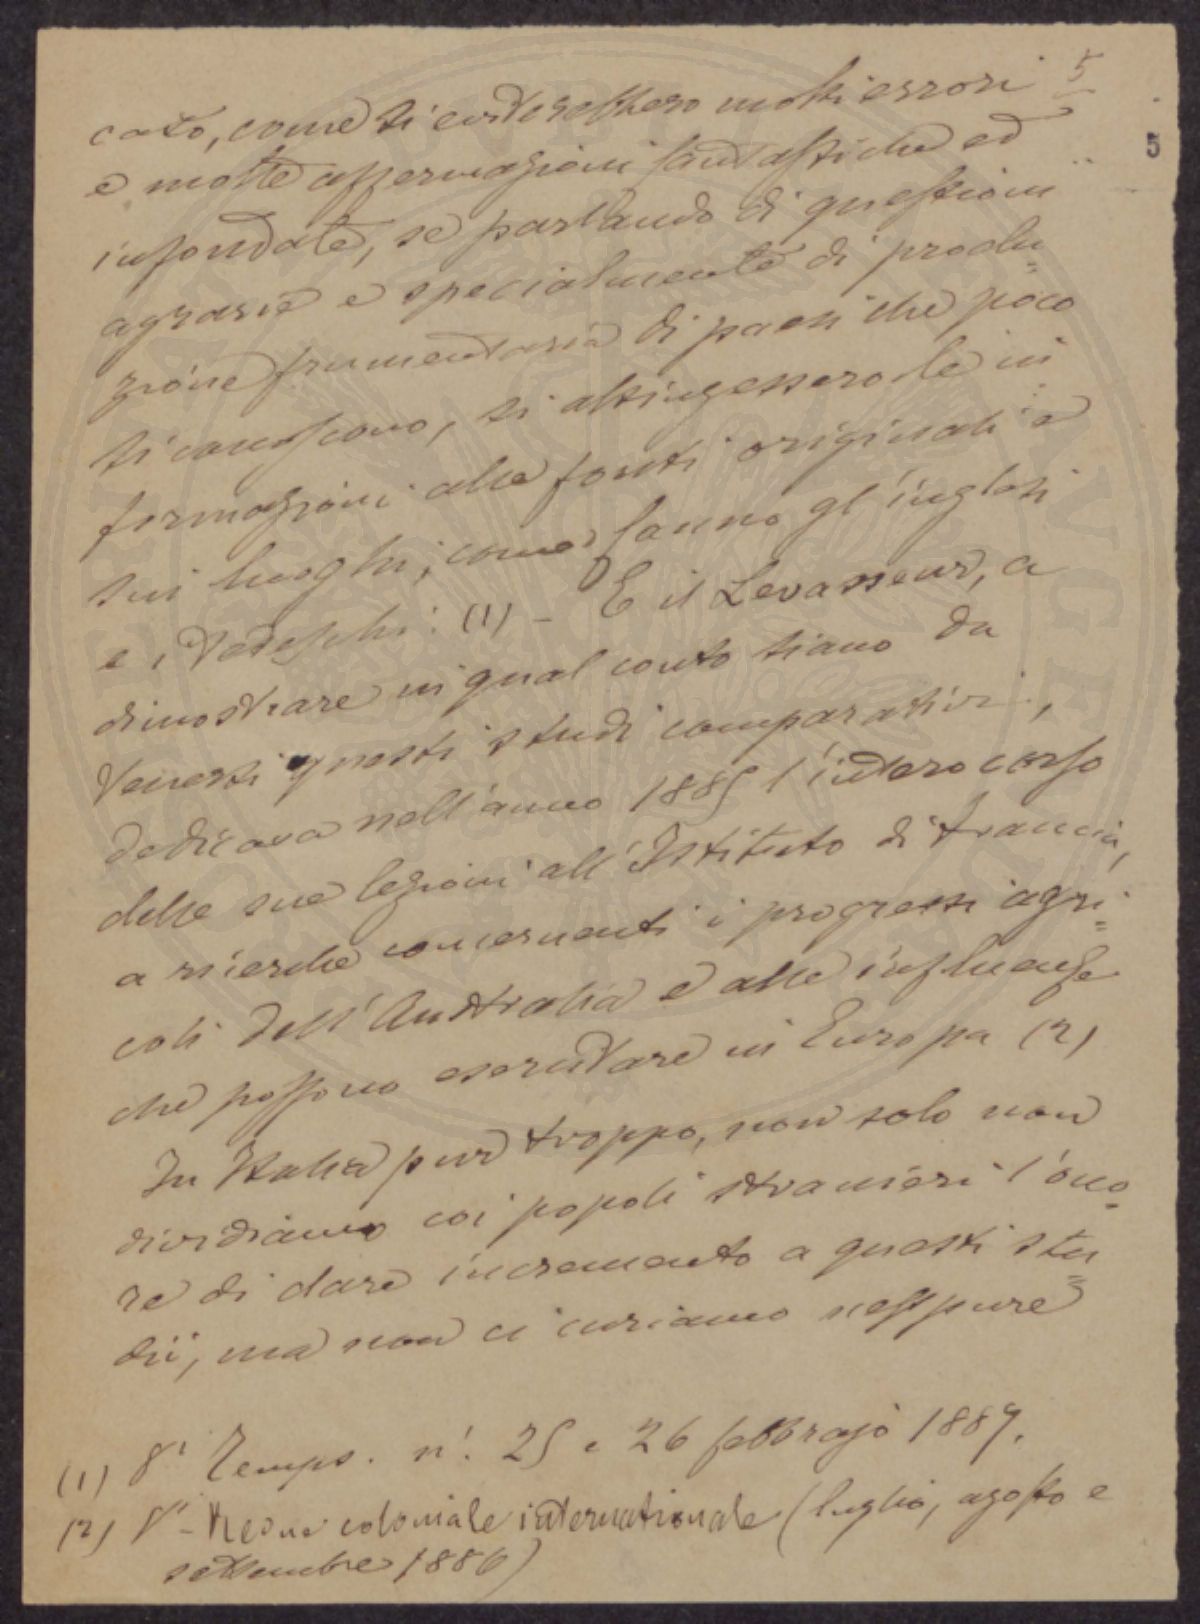 5
5
cato, come si eviterebbero molti errori
e molte affermazioni fantastiche ed
infondate, se parlando di questioni
agrarie e specialmente di produ=
zione frumentaria di paesi che poco
si conoscono, si attingessero le in=
formazioni alle fonti originali e
sui luoghi, come fanno gl'inglesi
e i tedeschi. (1) - E il Levasseur, a
dimostrare in qual conto siano da
tenersi questi studi comparativi,
dedicava nell'anno 1885 l'intero corso
delle sue lezioni all'Istituto di Francia,
a ricerche concernenti i progressi agri=
coli dell'Australia e alle influenze
che possono esercitare in Europa (2)
In Italia pur troppo, non solo non
dividiamo coi popoli stranieri l'ono=
re di dare incremento a questi stu=
dii, ma non ci curiamo neppure
(1) V. Temps. n. 25 e 26 febbrajo 1887.
(2) V. - Revue coloniale internationale (luglio, agosto e
settembre 1886)